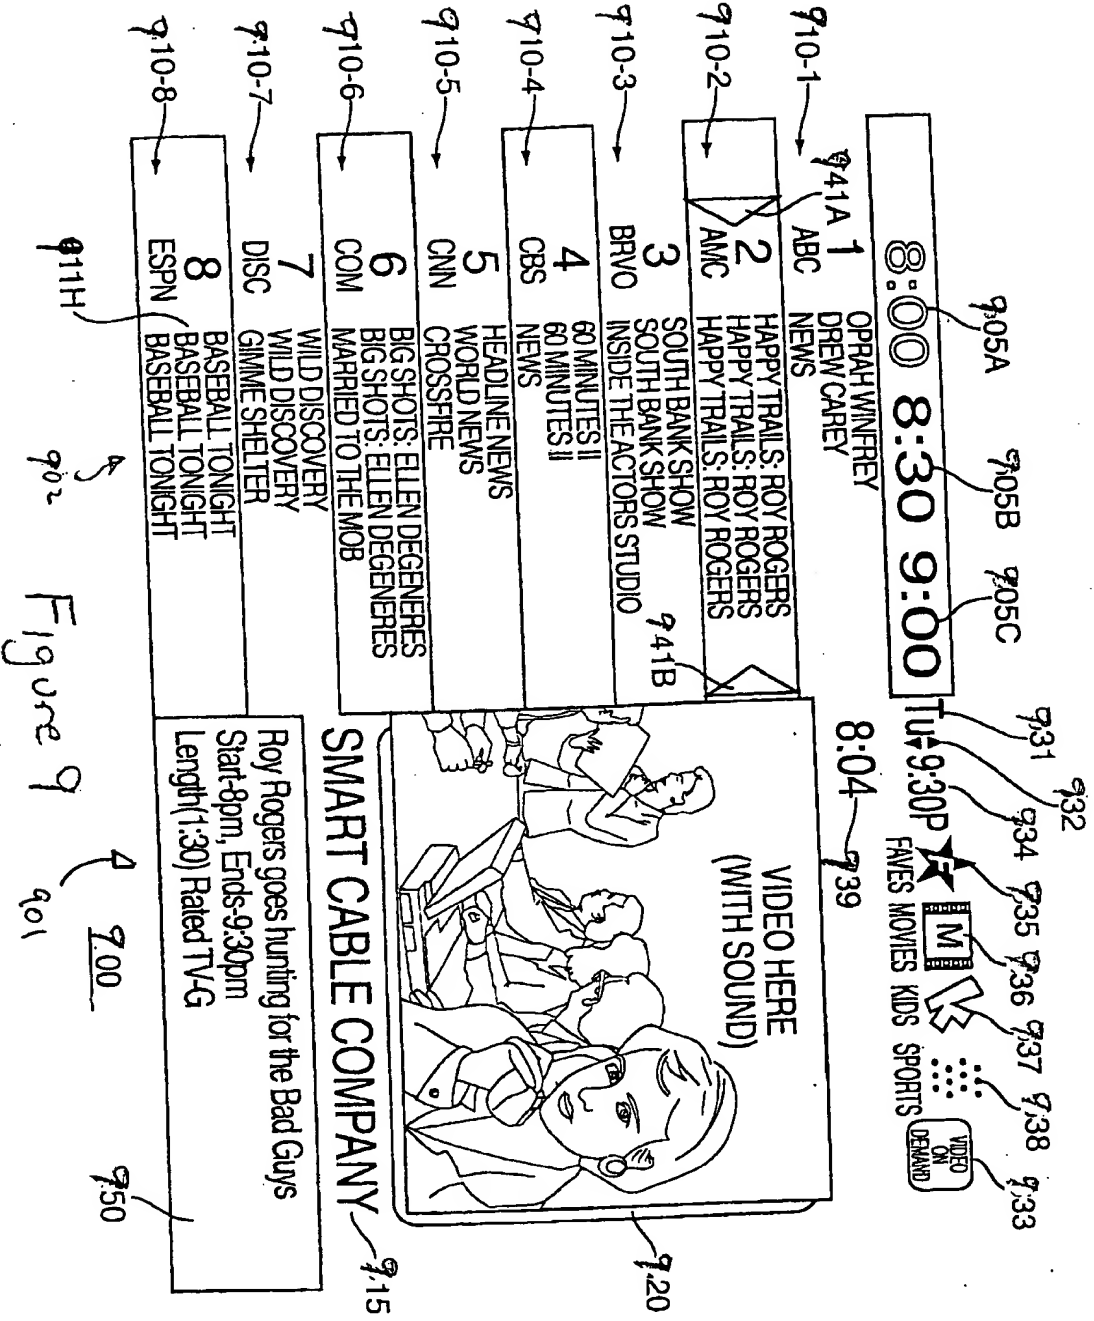 905A 905B 905C 931 932 934 935 936 937 938 933
8:00 8:30 9:00 Tu 9:30P F M K VIDEO ON DEMAND
FAVES MOVIES KIDS SPORTS
8:04 939
941A
910-1 1 ABC
OPRAH WINFREY
DREW CAREY
NEWS
910-2 2 AMC
HAPPY TRAILS: ROY ROGERS
HAPPY TRAILS: ROY ROGERS
HAPPY TRAILS: ROY ROGERS
941B
910-3 3 BRVO
SOUTH BANK SHOW
SOUTH BANK SHOW
INSIDE THE ACTORS STUDIO
910-4 4 CBS
60 MINUTES II
60 MINUTES II
NEWS
910-5 5 CNN
HEADLINE NEWS
WORLD NEWS
CROSSFIRE
910-6 6 COM
BIG SHOTS: ELLEN DEGENERES
BIG SHOTS: ELLEN DEGENERES
MARRIED TO THE MOB
910-7 7 DISC
WILD DISCOVERY
WILD DISCOVERY
GIMME SHELTER
910-8 8 ESPN
BASEBALL TONIGHT
BASEBALL TONIGHT
BASEBALL TONIGHT
911H
VIDEO HERE
(WITH SOUND)
920
SMART CABLE COMPANY
915
Roy Rogers goes hunting for the Bad Guys
Start-8pm, Ends-9:30pm
Length(1:30) Rated TV-G
950
902
901
900
Figure 9